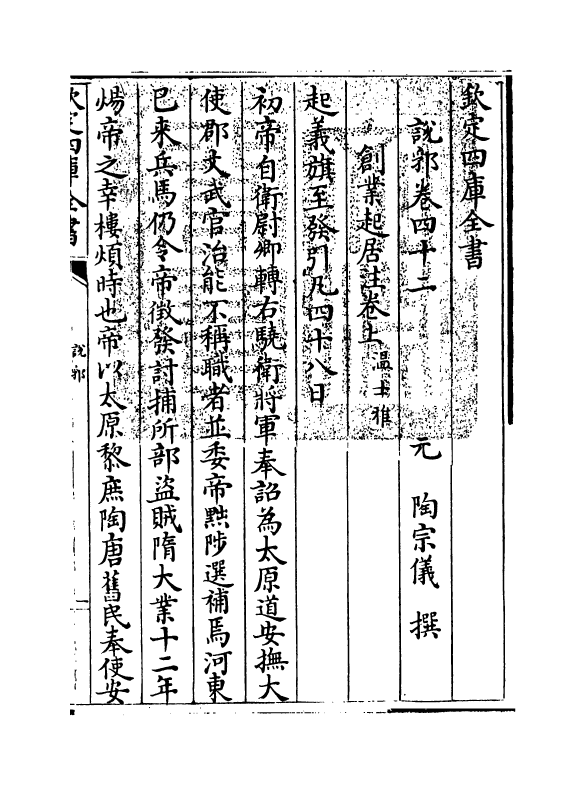 欽定四庫全書
說郛卷四十二　元　陶宗儀　撰
創業起居注卷上　温士雅
起義旗至發引凡四十八日
初帝自衛尉卿轉右驍衛將軍奉詔為太原道安撫大
使郡文武官治能不稱職者並委帝黜陟選補焉河東
已來兵馬仍令帝徴發討捕所部盜賊隋大業十二年
煬帝之幸樓煩時也帝以太原黎庶陶唐舊民奉使安
欽定四庫全書
說郛